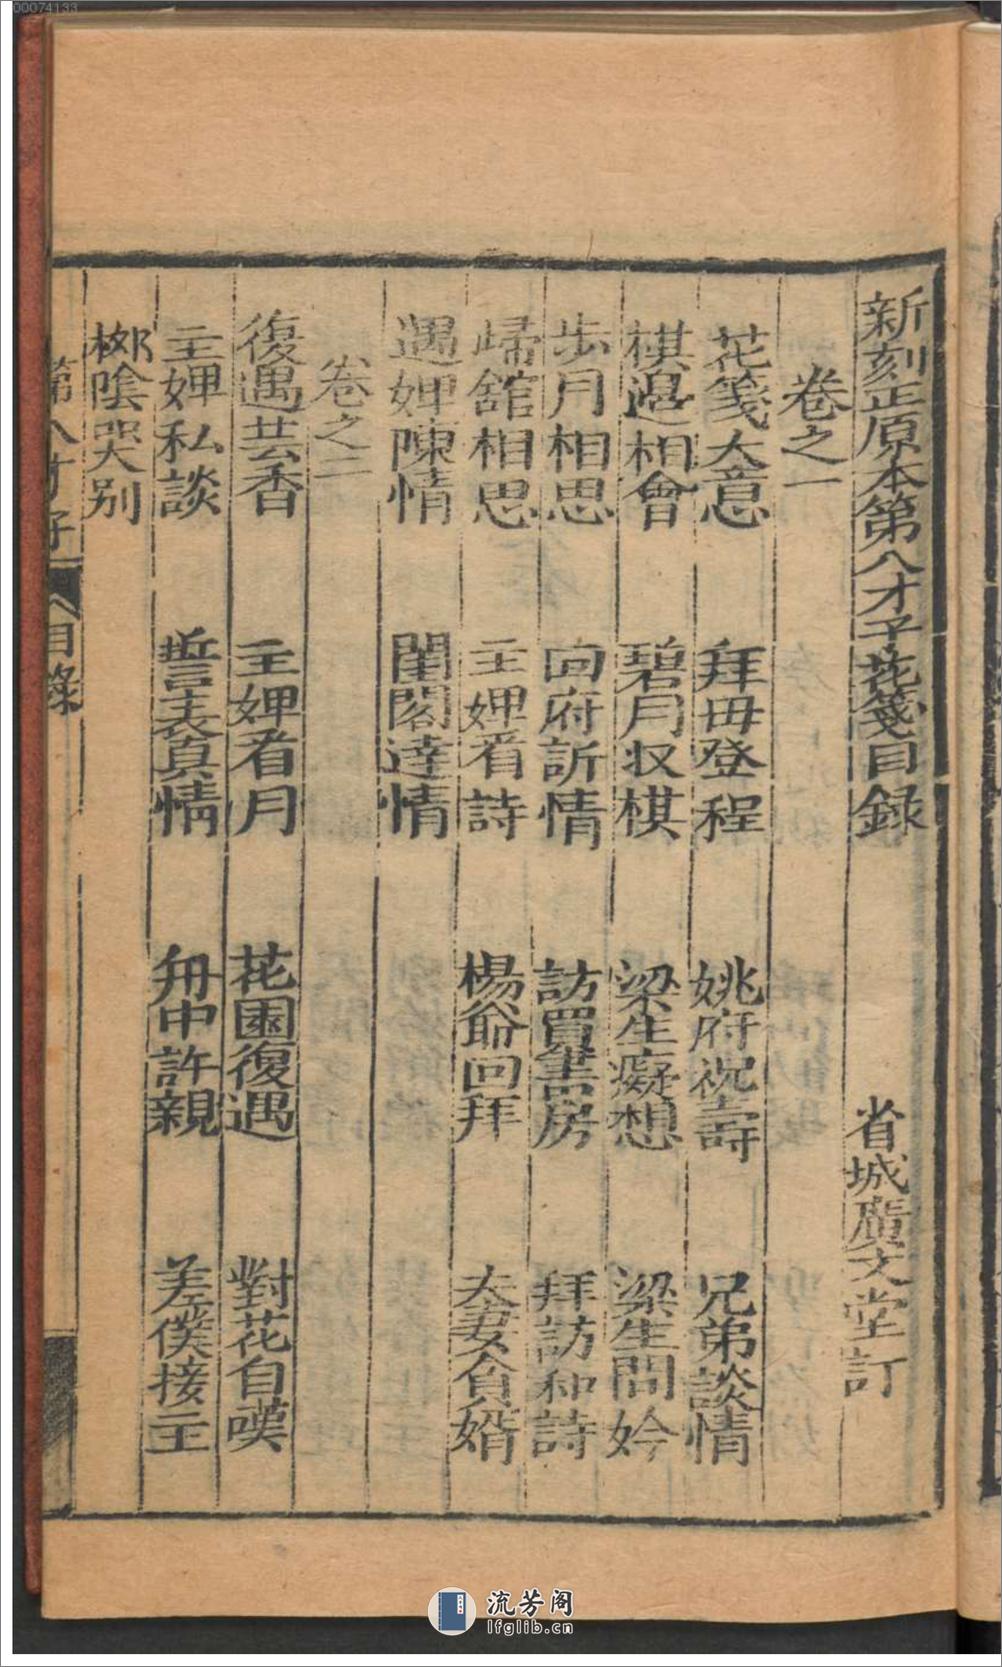 00074133
新刻正原本第八才子花箋目録
省城廣文堂訂
卷之一
花箋大意 拜母登程 姚府祝壽 兄弟談情
棋邉相會 碧月收棋 梁生癡想 梁生問妗
步月相思 回府訴情 訪買書房 拜訪和詩
歸舘相思 主婢看詩 楊爺回拜 夫妻負婿
遇婢陳情 閨閣達情
卷之二
復遇芸香 主婢看月 花園復遇 對花自嘆
主婢私談 誓表真情 舟中許親 差僕接主
柳陰哭别
第八才子 目錄
流芳阁
lfglib.cn